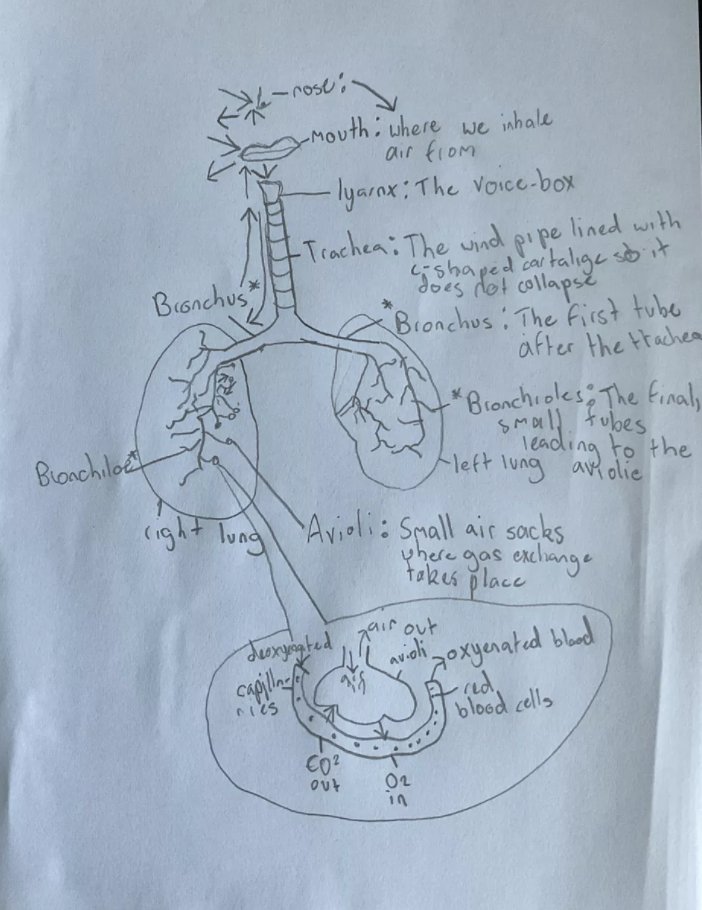 nose:
mouth: where we inhale
air from
lyarnx: The voice-box
Trachea: The wind pipe lined with
c-shaped cartalige so it
does not collapse
Bronchus*
*Bronchus: The first tube
after the trachea
*Bronchioles: The final,
small tubes
leading to the
aviolie
left lung
Bronchiloe*
right lung
Avioli: Small air sacks
where gas exchange
takes place
air out
deoxyenated
air
avioli
oxyenated blood
capilla-
ries
red
blood cells
CO²
out
O2
in